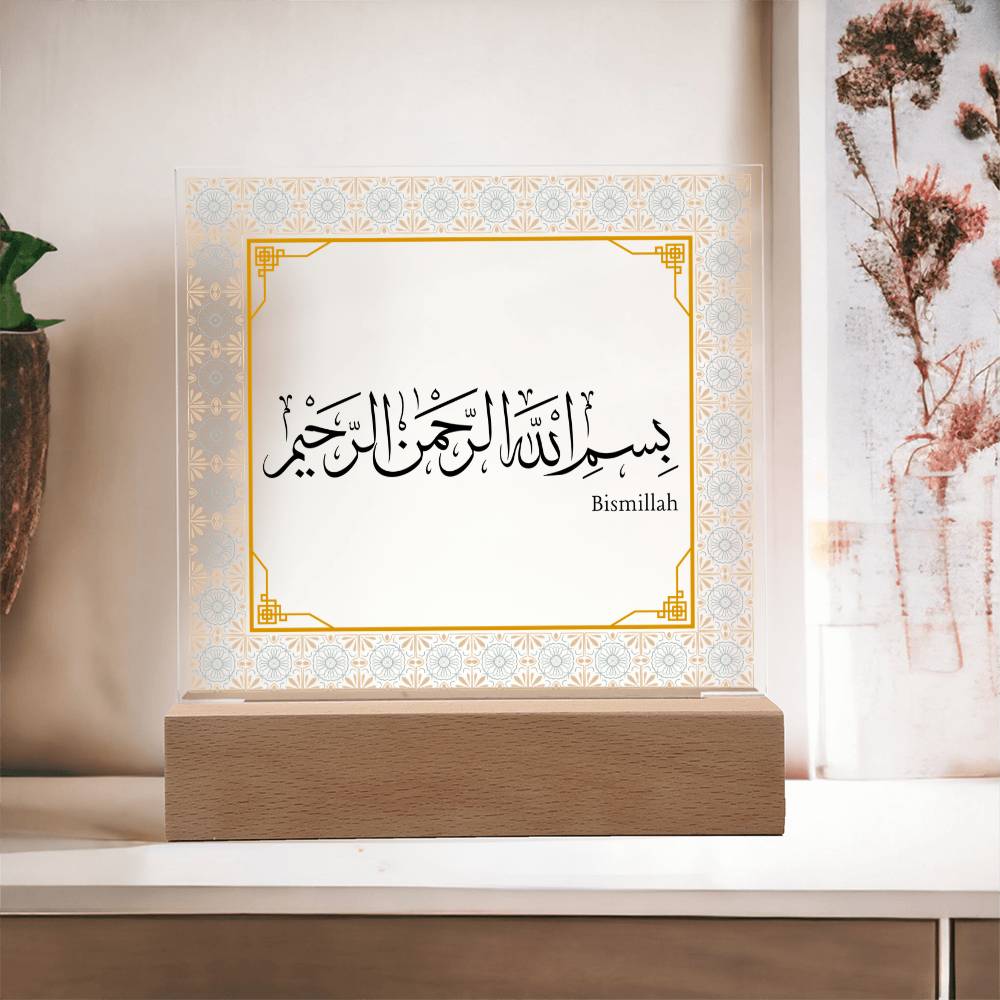 بِسْمِ اللَّهِ الرَّحْمٰنِ الرَّحِيْمِ
Bismillah